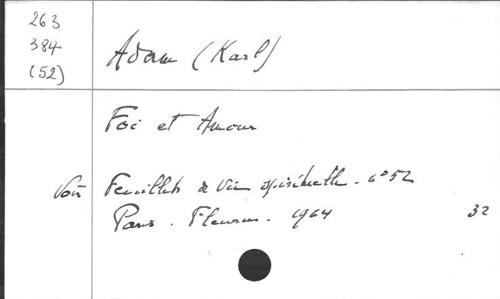 263
384
(52)
Adam (Karl)
Foi et Amour
Voir Feuillets de Vie spirituelle. n° 52
Paris. Fleurus. 1964 32